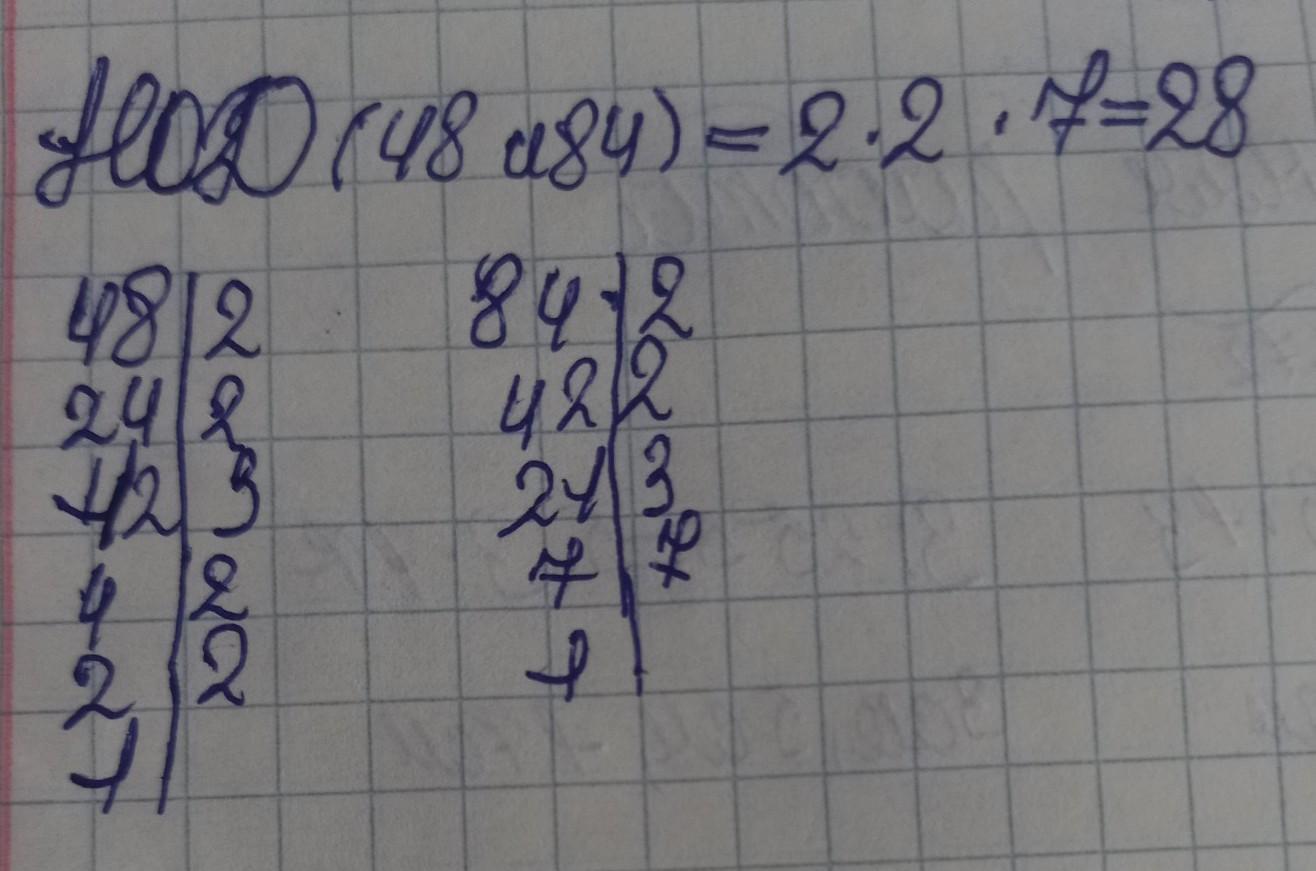 НОД (48 и 84) = 2 · 2 · 7 = 28
48 | 2 84 | 2
24 | 2 42 | 2
12 | 3 21 | 3
4 | 2 7 | 7
2 | 2 1
1